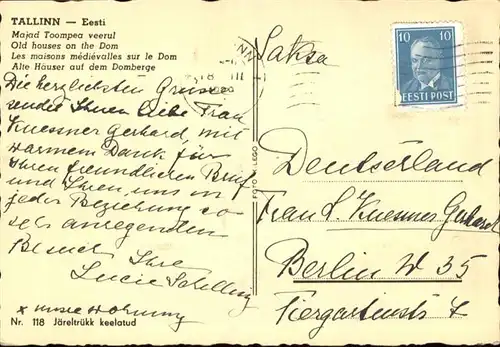 TALLINN — Eesti
Majad Toompea veerul
Old houses on the Dom
Les maisons médiévalles sur le Dom
Alte Häuser auf dem Domberge
Die herzlichsten Grüsse
sendet Ihnen liebe Frau
Kuessner Gerhard, mit
warmem Dank für
Ihren freundlichen Brief
und Ihren, uns in
jeder Beziehung so
sehr anregenden
Besuch Ihre
Lucie
x unsere Wohnung
Nr. 118 Järeltrükk keelatud
FOTO
Saksa
10 10
EESTI POST
Deutserland
Frau L. Kuessner Gerhard
Berlin W 35
Tiergartenstr